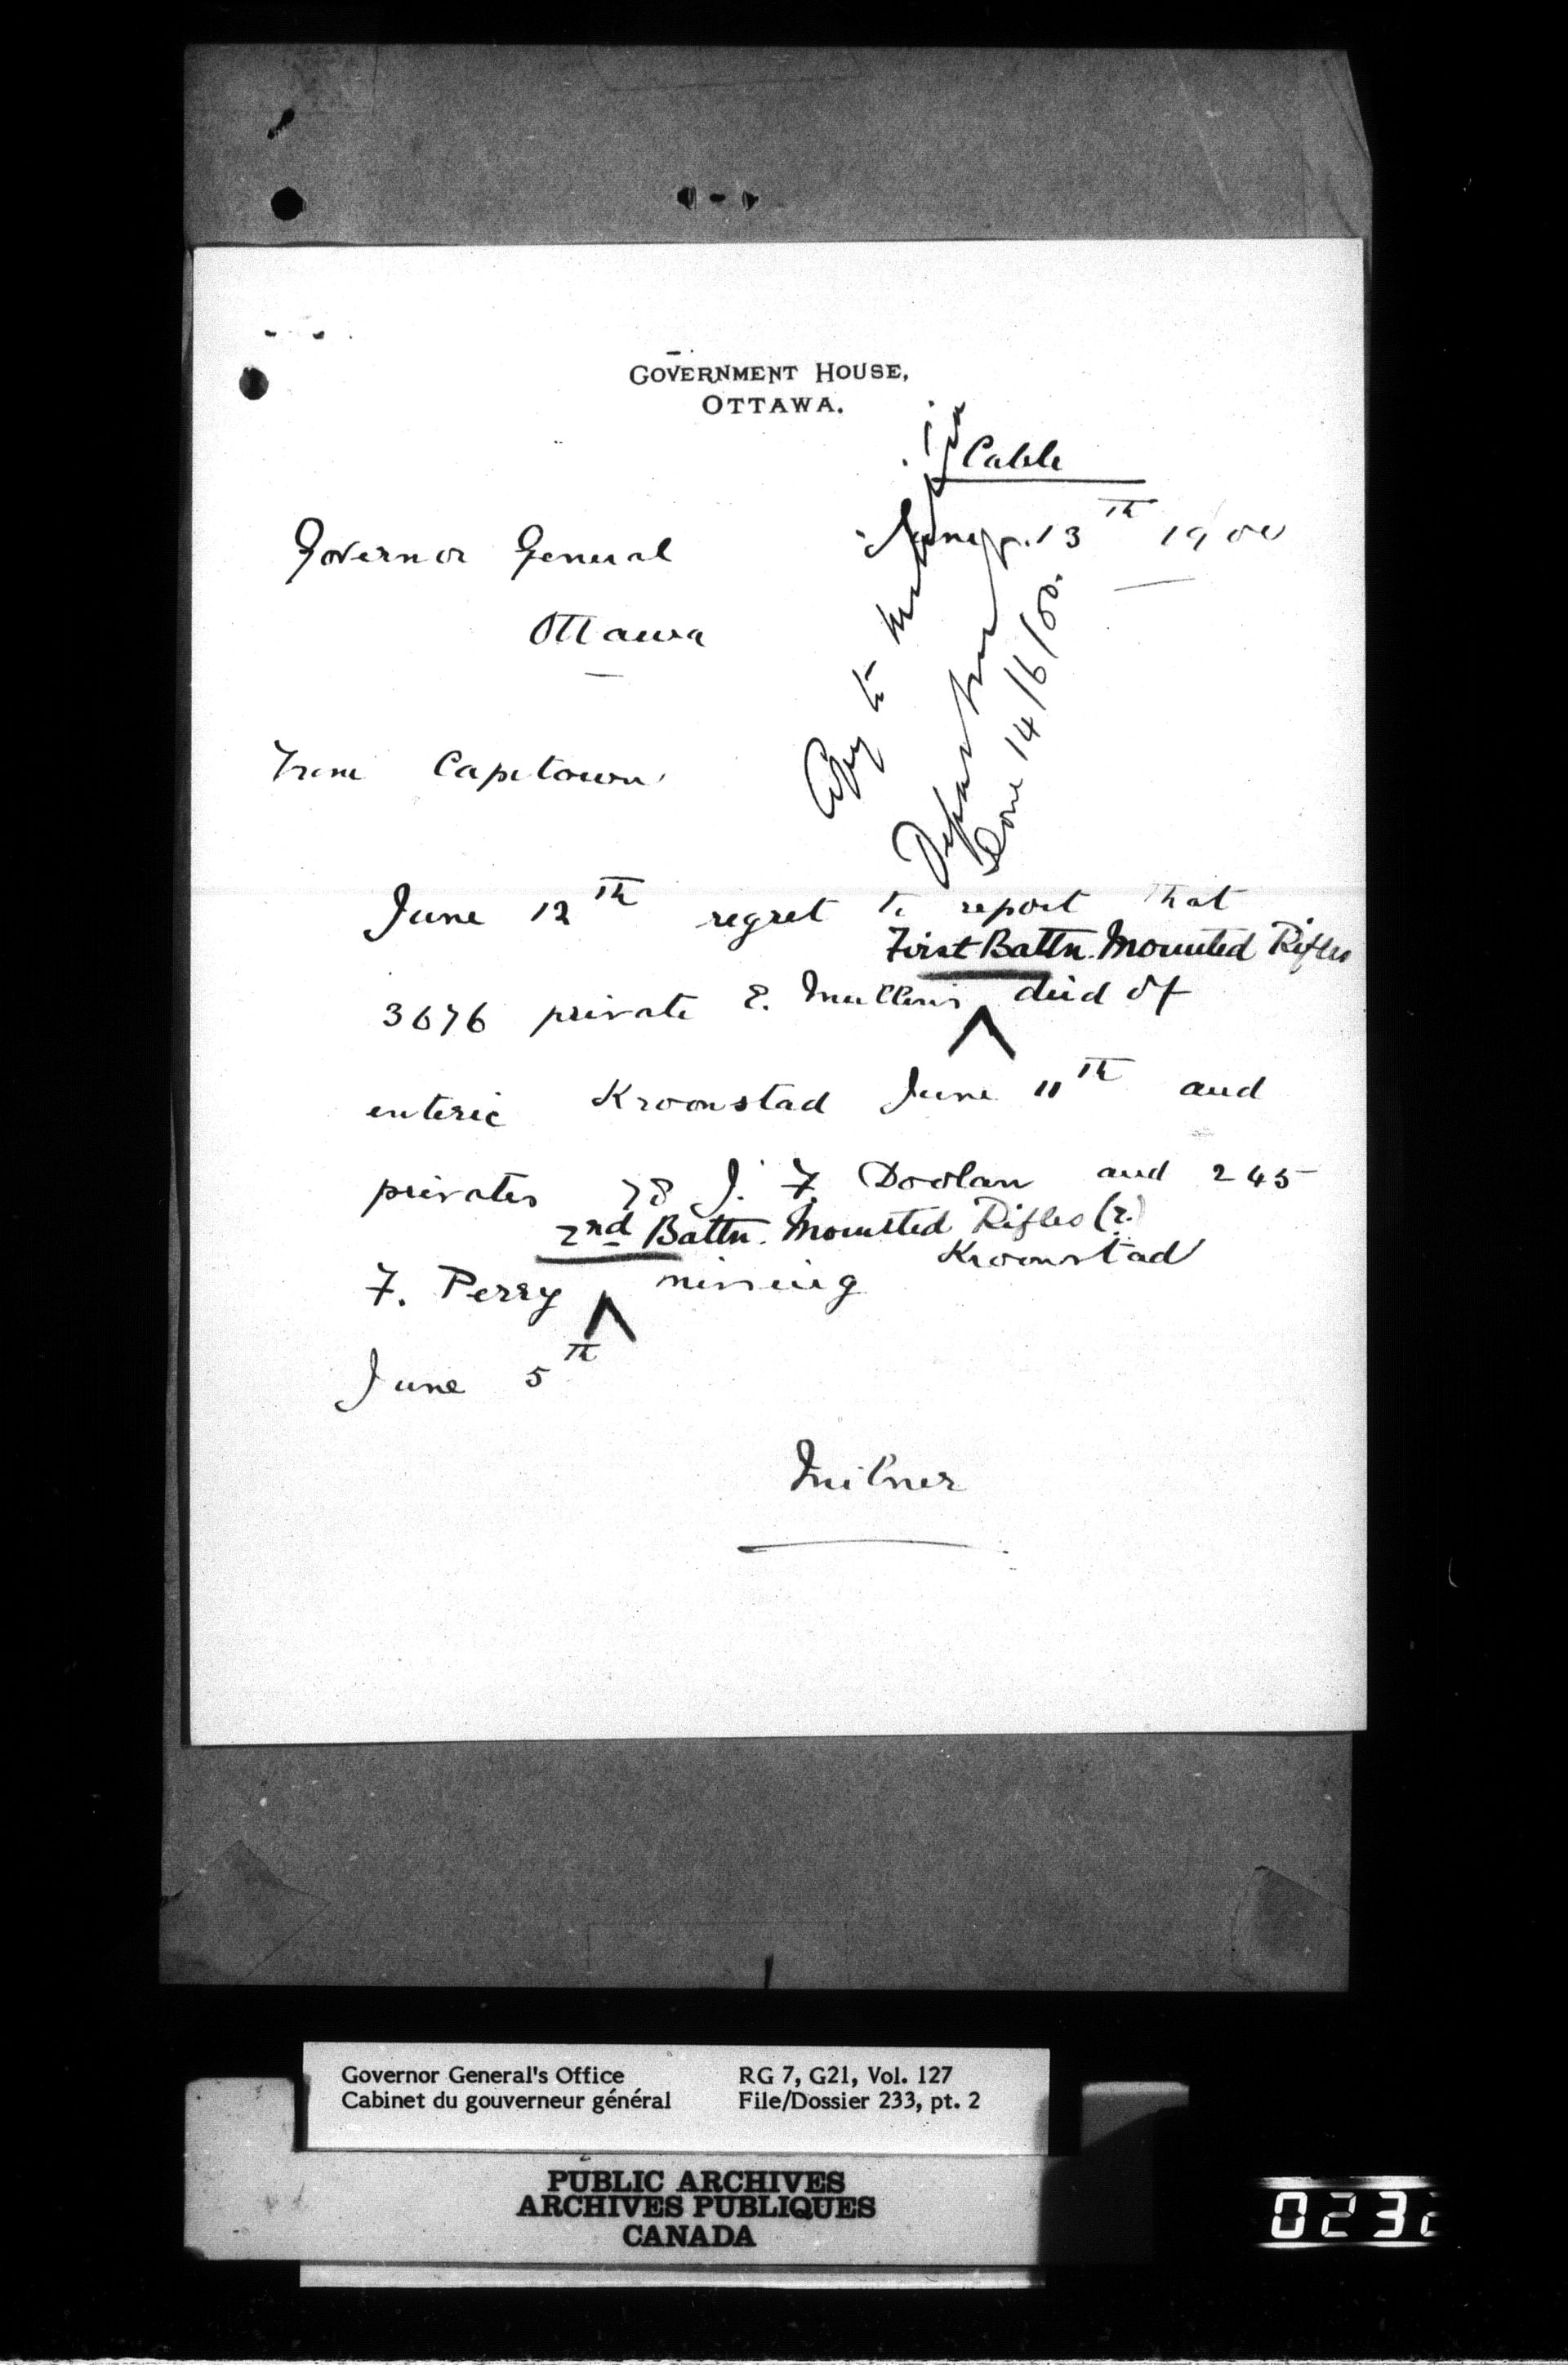 GOVERNMENT HOUSE,
OTTAWA.
Cable
June 13th 1900
Governor General
Ottawa
From Capetown
Copy to Militia
Department
Done 14/6/00.
June 12th regret to report that
First Battn. Mounted Rifles
3676 private E. Mullins ^ died of
enteric Kroonstad June 11th and
privates 78 J. F. Doolan and 245
2nd Battn. Mounted Rifles (?)
F. Perry ^ missing Kroonstad
June 5th
Milner
Governor General's Office
Cabinet du gouverneur général
RG 7, G21, Vol. 127
File/Dossier 233, pt. 2
PUBLIC ARCHIVES
ARCHIVES PUBLIQUES
CANADA
0232